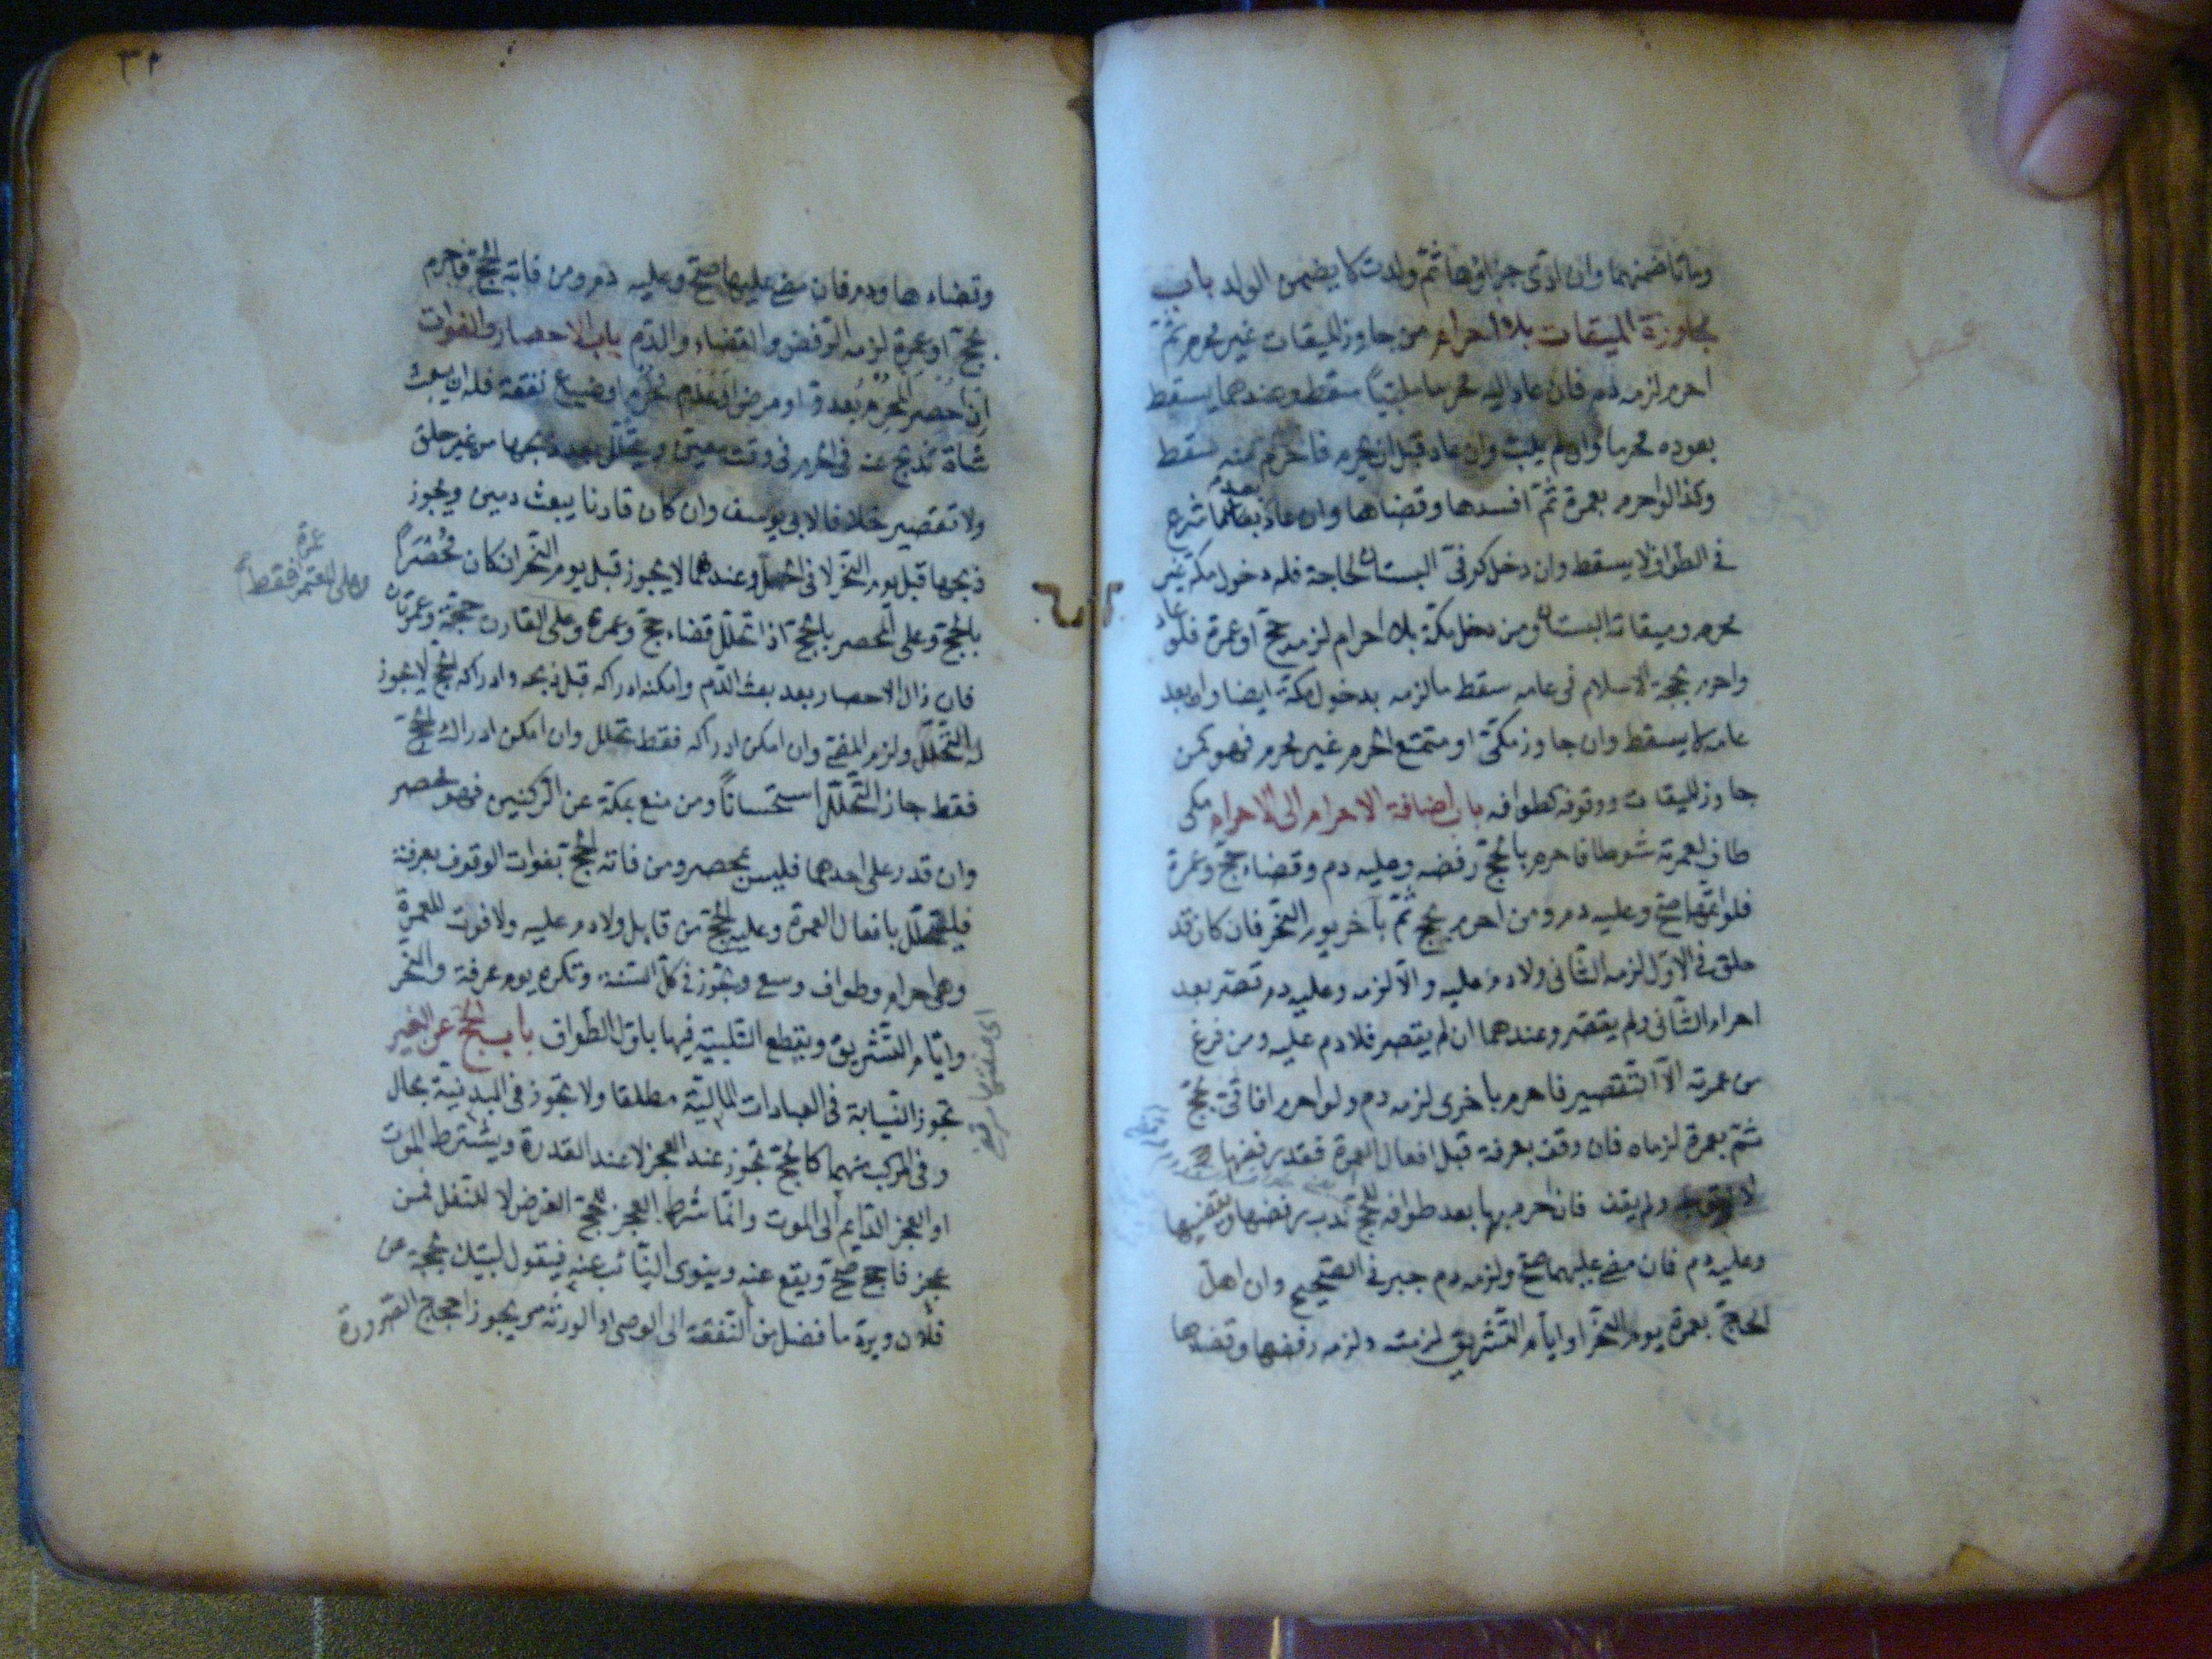 وماتا ضمنهما وان ادى جزاؤها ثم ولدت لا يضمن الولد باب
مجاوزة الميقات بلا احرام من جاوز الميقات غير محرم ثم
احرم لزمه دم فان عاد اليه محرما ملبيا سقط وعندهما يسقط
بعوده محرما وان لم يلب وان عاد قبل ان يحرم فاحرم منه سقط
وكذا لو احرم بعمرة ثم افسدها وقضاها وان عاد بعد ما شرع
في الطواف لا يسقط وان دخل كوفى البستان لحاجة فله دخول مكة غير
محرم وميقاته البستان ومن دخل مكة بلا احرام لزمه حج او عمرة فلو عاد
واحرم بحجة الاسلام فى عامه سقط ما لزمه بدخول مكة ايضا وان بعد
عامه لا يسقط وان جاوز مكى او متمتع الحرم غير محرم فهو كمن
جاوز الميقات ووقوفه كطوافه باب اضافة الاحرام الى الاحرام مكى
طاف لعمرته شوطا فاحرم بالحج رفضه وعليه دم وقضاء حج وعمرة
فلو اتمهما صح وعليه دم ومن احرم بحج ثم بآخر يوم النحر فان كان قد
حلق فى الاول لزمه الثانى ولا دم عليه والا لزمه وعليه دم قصر بعد
احرام الثانى ولم يقصر وعندهما ان لم يقصر فلا دم عليه ومن فرغ
من عمرته الا التقصير فاحرم باخرى لزمه دم ولو احرم افاقى بحج
ثم بعمرة لزماه فان وقف بعرفة قبل افعال العمرة فقد رفضها
ولم يقف فان احرم بها بعد طوافه للحج ندب رفضها ويقضيها
وعليه دم فان مضى عليهما صح ولزمه دم جبر فى الصحيح وان اهل
الحاج بعمرة يوم النحر او ايام التشريق لزمته ولزمه رفضها وقضاها
فصل
٣٢
وقضاءها ودم فان مضى عليها صح وعليه دم ومن فاته الحج فاحرم
بحج او عمرة لزمه الرفض والقضاء والدم باب الاحصار والفوات
ان احصر المحرم بعدو او مرض او عدم محرم او ضياع نفقة فله ان يبعث
شاة تذبح عنه فى الحرم فى وقت معين ويتحلل بعد ذبحها من غير حلق
ولا تقصير خلافا لابى يوسف وان كان قارنا يبعث دمين ويجوز
ذبحها قبل يوم النحر لا فى الحل وعندهما لا يجوز قبل يوم النحر ان كان محصرا
بالحج وعلى المحصر بالحج اذا تحلل قضاء حج وعمرة وعلى القارن حجة وعمرتان
فان زال الاحصار بعد بعث الدم وامكنه ادراكه قبل ذبحه وادراك الحج لا يجوز
له التحلل ولزم المضى وان امكن ادراكه فقط تحلل وان امكن ادراك الحج
فقط جاز التحلل استحسانا ومن منع بمكة عن الركنين فهو محصر
وان قدر على احدهما فليس بمحصر ومن فاته الحج بفوات الوقوف بعرفة
فليتحلل بافعال العمرة وعليه الحج من قابل ولا دم عليه ولا فوت للعمرة
وهى احرام وطواف وسعى وتجوز فى كل السنة وتكره يوم عرفة والنحر
وايام التشريق ويقطع التلبية فيها باول الطواف باب الحج عن الغير
تجوز النيابة فى العبادات المالية مطلقا ولا تجوز فى البدنية بحال
وفى المركب منهما كالحج تجوز عند العجز لا عند القدرة ويشترط الموت
او العجز الدايم الى الموت وانما شرط العجز للحج الفرض لا للنفل فمن
عجز فاحج صح ويقع عنه وينوى النائب عنه فيقول لبيك بحجة عن
فلان ويرد ما فضل من النفقة الى الوصى او الورثة ويجوز احجاج الصرورة
عمرة
وعلى المعتمر فقط